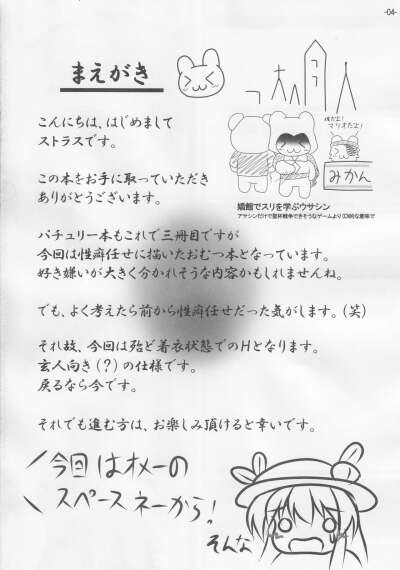 -04-
まえがき
こんにちは、はじめまして
ストラスです。
この本をお手に取っていただき
ありがとうございます。
みかん
娼館でスリを学ぶウサシン
パチュリー本もこれで三冊目ですが
今回は性癖任せに描いたおむつ本となっています。
好き嫌いが大きく分かれそうな内容かもしれませんね。
でも、よく考えたら前から性癖任せだった気がします。(笑)
それ故、今回は殆ど着衣状態でのHとなります。
玄人向き(?)の仕様です。
戻るなら今です。
それでも進む方は、お楽しみ頂けると幸いです。
今回はオメーの
スペースネーから!
そんな